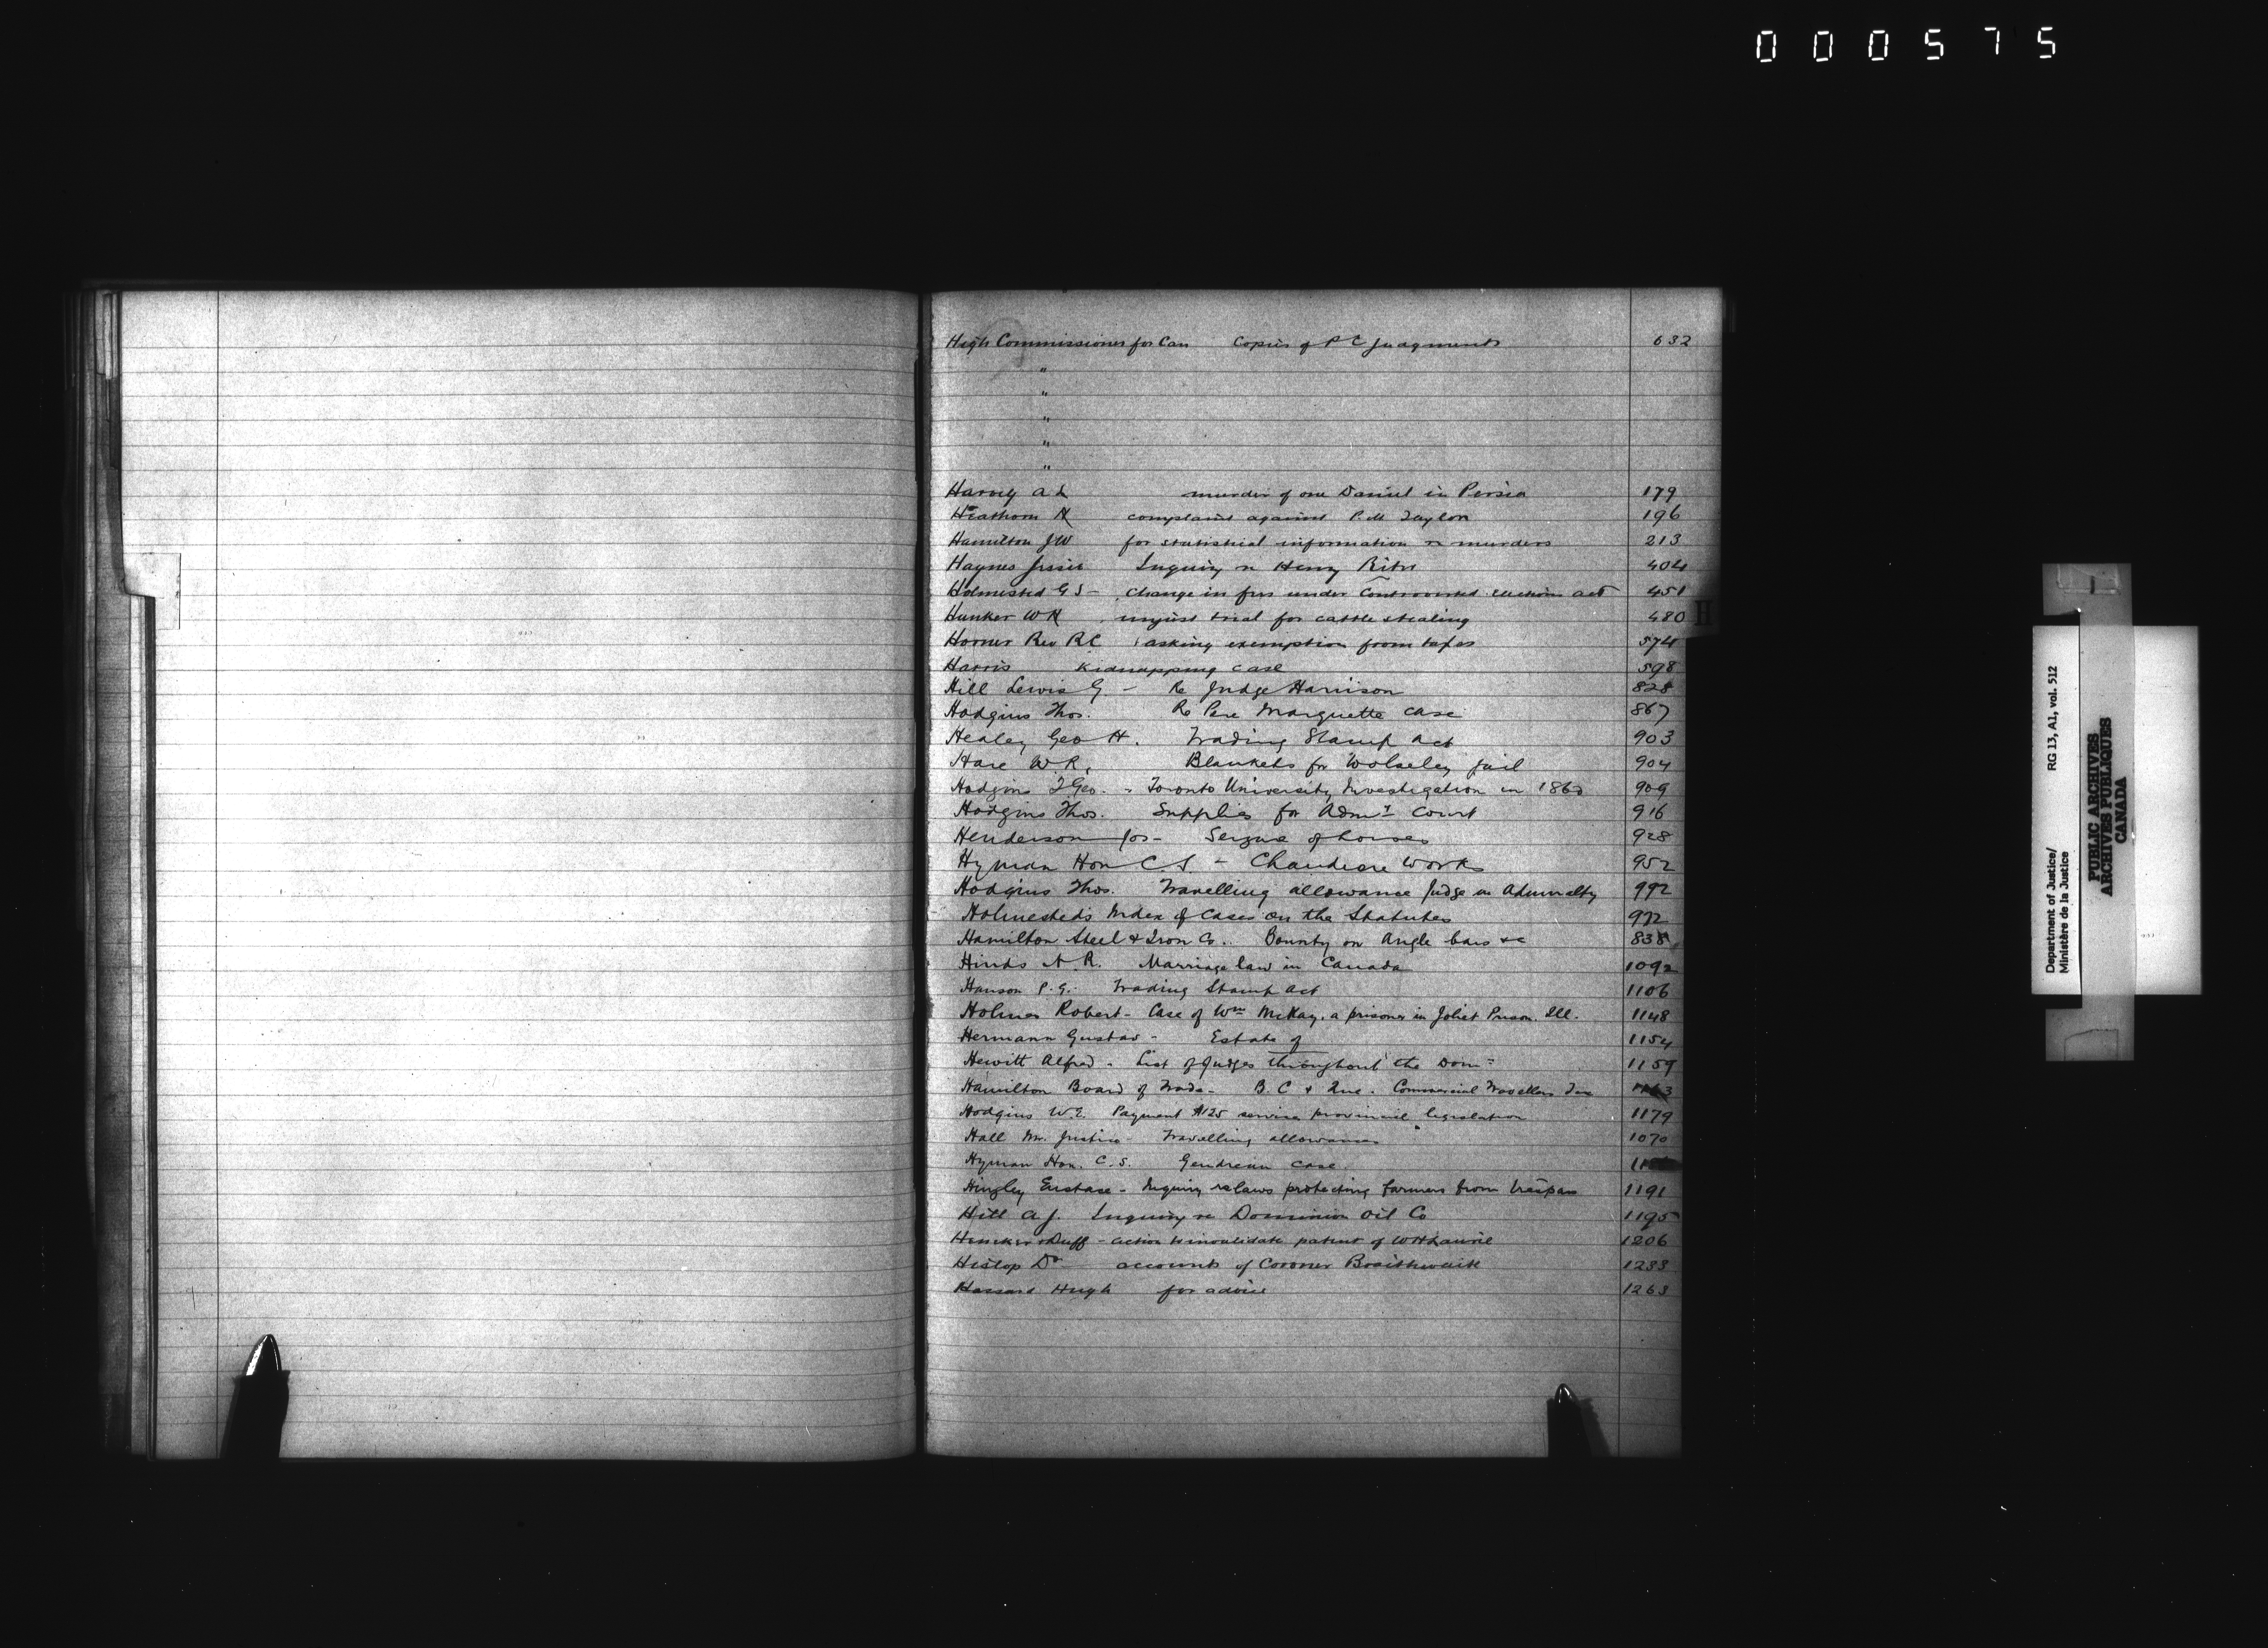 000575
High Commissioner for Can Copies of P C Judgments 632
"
"
"
"
"
Harvey A L murder of one Daniel in Persia 179
Heathorn H complaint against P.M. Taylor 196
Hamilton JW for statistical information re murders 213
Haynes Jessie Inquiry re Henry 404
Holmested G S - change in fees under Controverted elections act 451
Hunker W H unjust trial for cattle stealing 480
H
Horner Rev R C asking exemption from taxes 574
Harris kidnapping case 598
Hill Lewis G. - Re Judge Harrison 828
Hodgins Thos. Re Pere Marquette case 867
Healey Geo H. Trading Stamp Act 903
Hare W R, Blankets for Wolseley jail 904
Hodgins J Geo. - Toronto University Investigation in 1860 909
Hodgins Thos. Supplies for Admty Court 916
Henderson Jos - Seizure of horses 928
Hyman Hon C S - Chaudiere Works 952
Hodgins Thos. Travelling allowance Judge in Admiralty 992
Holmested's Index of Cases on the Statutes 972
Hamilton Steel & Iron Co.. Bounty on Angle bars &c 838
Hinds A. R. Marriage law in Canada 1092
Hanson P. G. Trading Stamp Act 1106
Holmes Robert - Case of Wm McKay, a prisoner in Joliet Prison. Ill. 1148
Hermann Gustav - Estate of 1154
Hewitt Alfred - List of Judges throughout the Domn 1159
Hamilton Board of Trade - B. C & Que. Commercial Travellers Tax 1163
Hodgins W.E. Payment $125 services provincial legislation 1179
Hall Mr. Justice - Travelling allowances 1070
Hyman Hon. C. S. Gendreau case.
Hingley Eustace - Inquiry re laws protecting farmers from trespass 1191
Hill A J. Inquiry re Dominion Oil Co 1195
& Duff - action to invalidate patent of W H Laurie 1206
Hislop Dr accounts of Coroner Braithwaite 1233
Hassard Hugh for advice 1263
Department of Justice/ RG 13, A1, vol. 512
Ministère de la Justice
PUBLIC ARCHIVES
ARCHIVES PUBLIQUES
CANADA